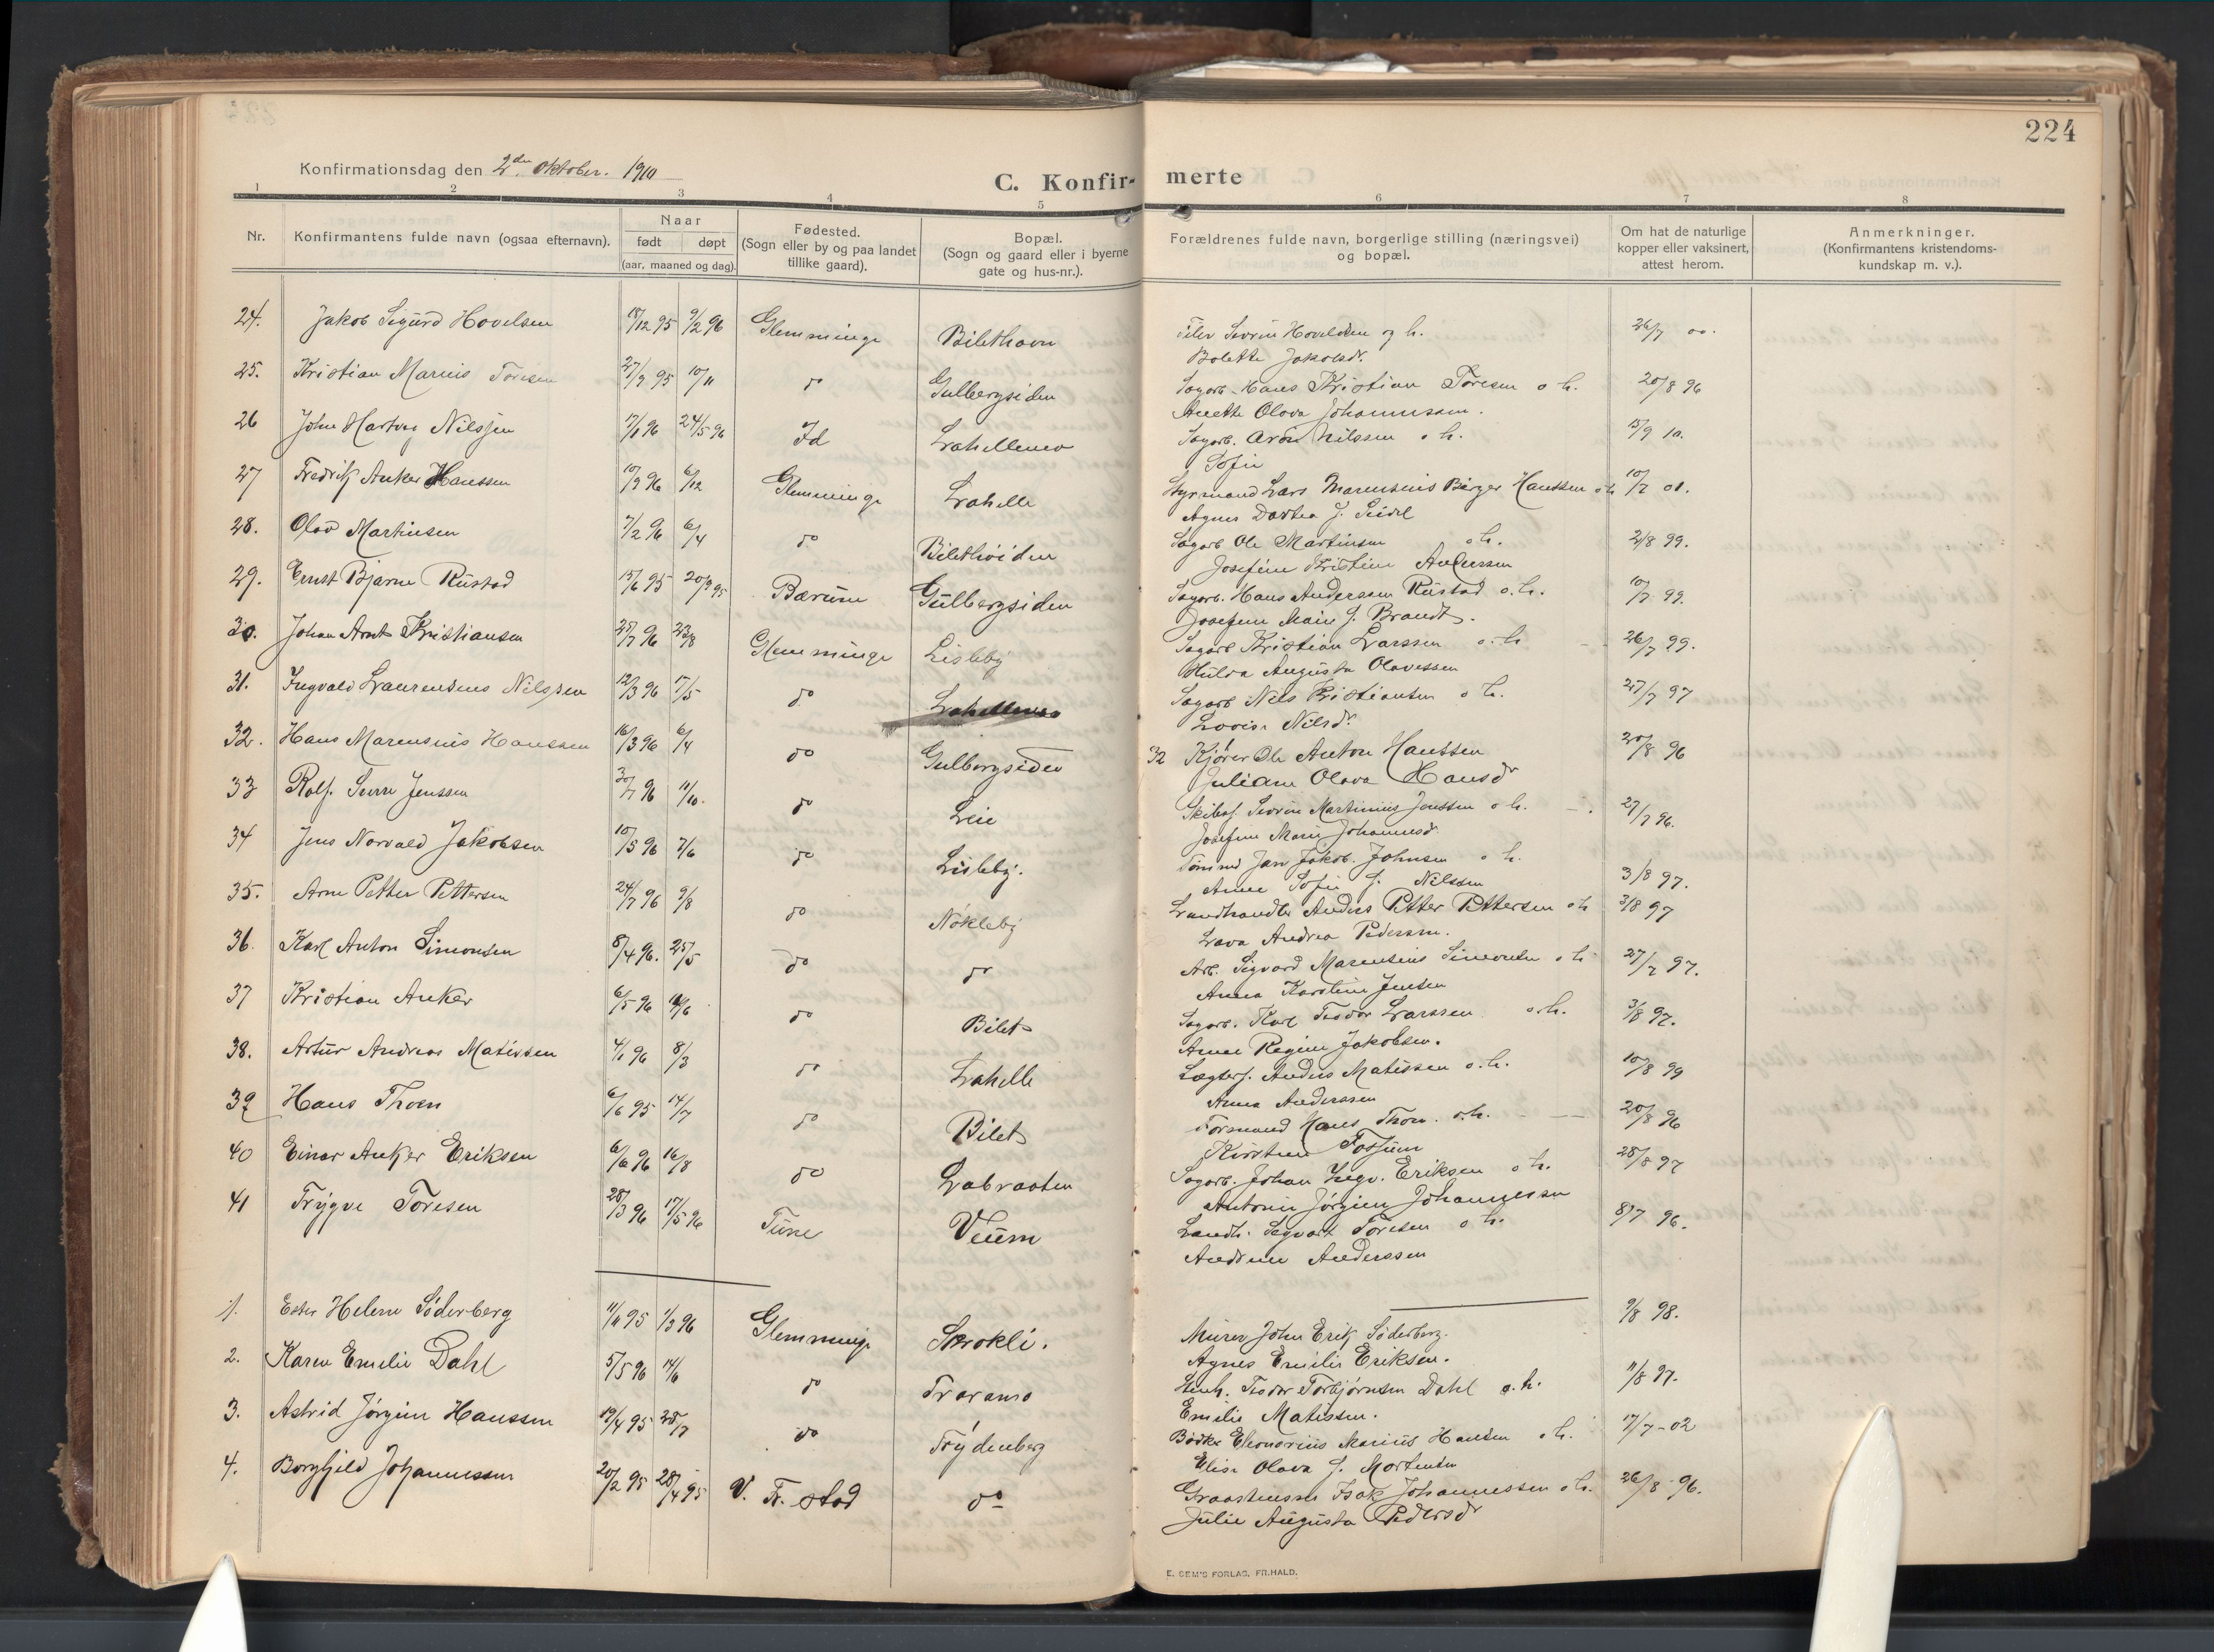 224
Konfirmationsdag den 2den oktober. 1910
C. Konfir- merte
1 2 3 4 5 6 7 8
Nr.
Konfirmantens fulde navn (ogsaa efternavn).
Naar
født døpt
(aar, maaned og dag).
Fødested.
(Sogn eller by og paa landet
tillike gaard).
Bopæl.
(Sogn og gaard eller i byerne
gate og hus-nr.).
Forældrenes fulde navn, borgerlige stilling (næringsvei)
og bopæl.
Om hat de naturlige
kopper eller vaksinert,
attest herom.
Anmerkninger.
(Konfirmantens kristendoms-
kundskap m. v.).
24. Jakob Sigurd Hovelsen 18/12 95 9/2 96 Glemminge Bilethavn Severin Hovelsen og h. 26/7 00.
Bolette Jakobsdr.
25. Kristian Marius Toresen 27/9 95 10/11 do Gulbergsiden Sagarb. Hans Kristian Toresen o h. 20/8 96
Anette Olava Johannessen.
26 John Hartvig Nilssen 17/1 96 24/5 96 Id Lahellemo Sagarb. Aron Nilssen o h. 15/9 10.
Sofie
27 Fredrik Anker Hanssen 10/9 96 6/12 Glemminge Lahelle Styrmand Lars Marensius Birger Hanssen o h 10/7 01.
Agnes Dortea J. Seidel
28. Olav Martinsen 7/2 96 6/4 do Bilethöiden Sagarb Ole Martinsen o h. 2/8 99.
Josefine Kristine Anderssen
29. Ernst Bjarne Rustad 15/6 95 20/9 95 Bærum Gulbergsiden Sagarb. Hans Anderssen Rustad o. h. 10/7 99.
Josefine Marie J. Brandt.
30. Johan Arnt Kristiansen 25/7 96 23/8 Glemminge Lisleby Sagarb Kristian Larssen o. h 26/7 99.
Hulda Augusta Olavessen
31. Ingvald Laurensius Nilssen 12/3 96 17/5 do Lahellemo Sagarb Nils Kristiansen o h. 27/7 97
Lovise Nilsdr.
32. Hans Marensius Hanssen 16/3 96 6/4 do Gulbergsiden 32 Kjører Ole Anton Hanssen 20/8 96
Juliane Olava Hansdr
33 Rolf Sverre Jenssen 30/7 96 11/10. do Leie Skibsf. Severin Martinius Jenssen o h. 27/7 96.
Josefine Marie Johannesdr
34 Jens Norvald Jakobsen 10/5 96 7/6 do Lisleby. Tømmd Jan Jakob. Johnsen o h. 3/8 97.
Anne Sofie J. Nilssen
35. Arne Petter Pettersen 24/7 96 9/8 do Nøkleby Landhandler Anders Petter Pettersen o h 3/8 97
Lava Andrea Pedersen.
36. Karl Anton Simonsen 8/4 96. 25/5 do do Arb. Sigvard Marensius Simonsen o h 27/7 97.
Anna Karoline Jensen
37 Kristian Anker 6/5 96 14/6 do Bilet Sagarb. Karl Teodor Larssen o. h. 3/8 97.
Anne Regine Jakobsen.
38. Artur Andreas Matissen 4/1 96 8/3 do Lahelle Lægterf. Anders Matissen o. h. 10/8 99
Anna Anderssen
39 Hans Thoen 6/6 95 14/7 do Bilet Formand Hans Thoen. o. h. 20/8 96
Kirstine Fossum
40 Einar Anker Eriksen 6/6 96 16/8 do Labraaten Sagarb. Johan Ingv. Eriksen o h. 28/8 97
Antonie Jørgine Johannessen
41 Trygve Toresen 28/3 96 17/5 96 Tune Veum Landh. Sigvart Toresen o h. 8/7 96.
Andrine Anderssen
1. Ester Helene Söderberg 11/11 95 1/3 96 Glemminge Sorokli. Murer John Erik Söderberg. 9/8 98.
Agnes Emilie Eriksen.
2. Karen Emilie Dahl 5/5 96 14/6 do Traramo Stenh. Teodor Torbjørnsen Dahl o. h. 11/8 97.
Emilie Matissen.
3. Astrid Jørgine Hanssen 19/4 95 28/7 do Trydenberg Bødker Eleonorius Marius Hansen o h. 17/7-02
Elise Olava J. Mortensen
4. Borghild Johannessen 20/2 95 28/4 95 V. Fr. stad do Isak Johannessen o h. 26/8-96.
Julie Augusta Pedersdr
E. SEM'S FORLAG, FR.HALD.